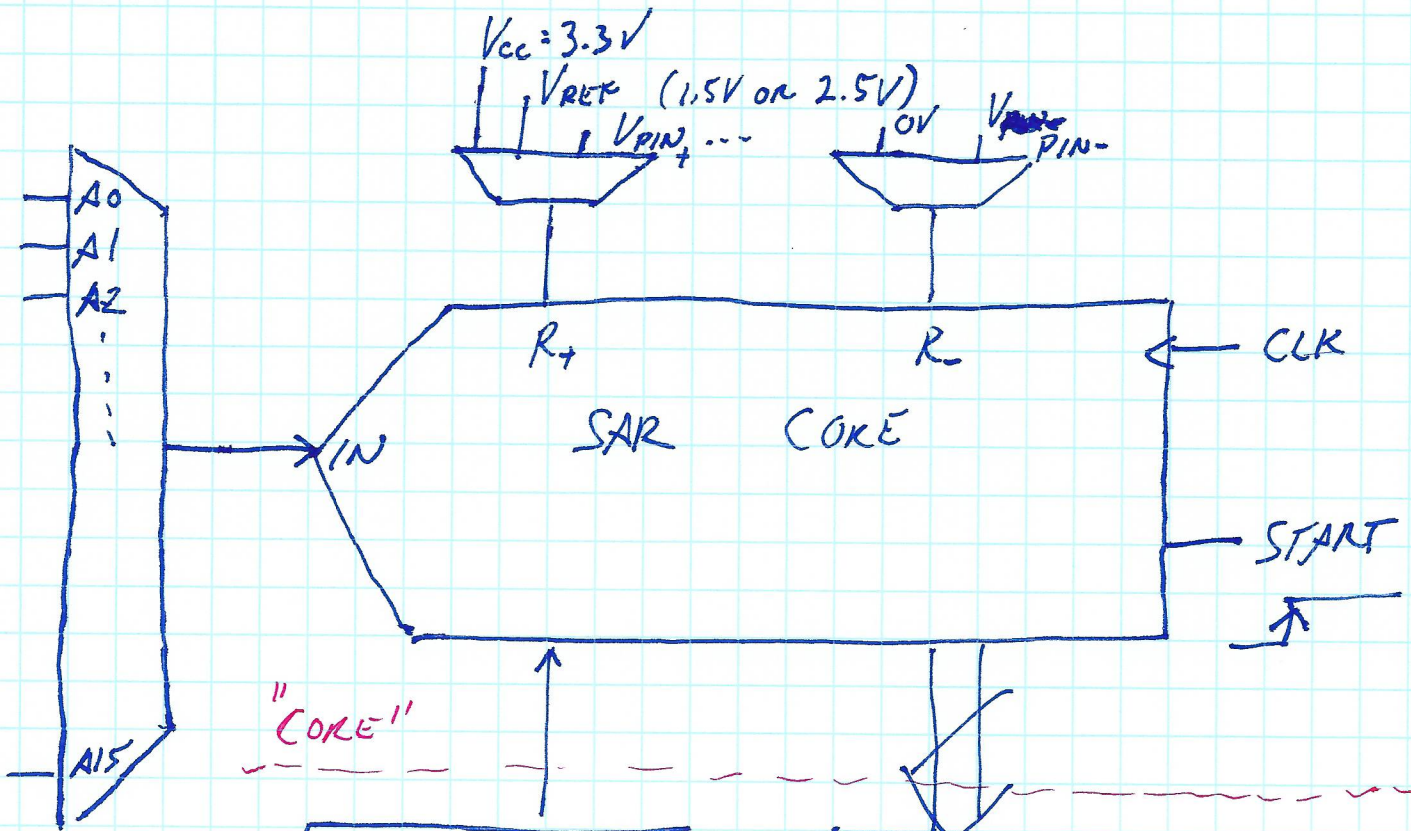 Vcc = 3.3V
VREF (1.5V OR 2.5V)
VPIN+ ...
0V
VPIN-
A0
A1
A2
A15
R+
R-
CLK
IN
SAR CORE
START
"CORE"